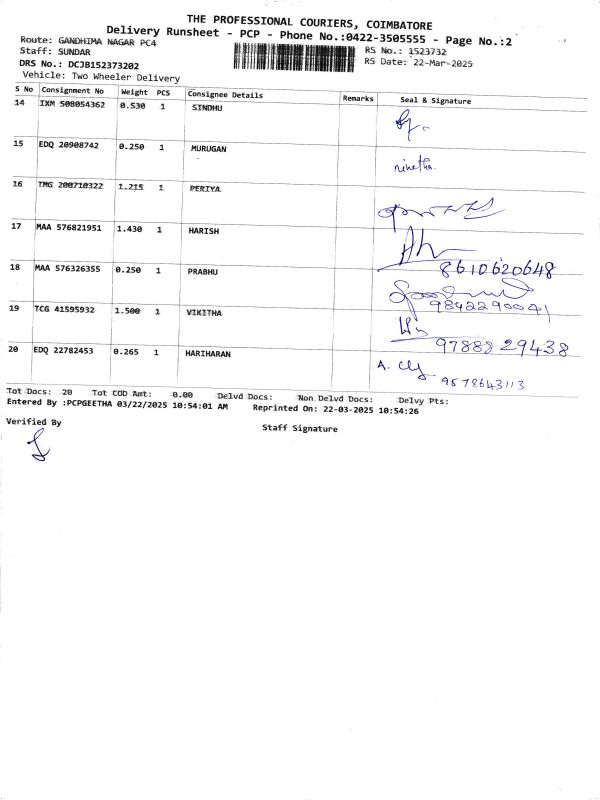 THE PROFESSIONAL COURIERS, COIMBATORE
Delivery Runsheet - PCP - Phone No.:0422-3505555 - Page No.:2
Route: GANDHIMA NAGAR PC4
RS No.: 1523732
Staff: SUNDAR
RS Date: 22-Mar-2025
DRS No.: DCJB152373202
Vehicle: Two Wheeler Delivery
S No Consignment No Weight PCS Consignee Details Remarks Seal & Signature
14 IXM 508054362 0.530 1 SINDHU
15 EDQ 20908742 0.250 1 MURUGAN
16 TMG 200710322 1.215 1 PERIYA
17 MAA 576821951 1.430 1 HARISH 8610620648
18 MAA 576326355 0.250 1 PRABHU 9842290041
19 TCG 41595932 1.500 1 VIKITHA 9788829438
20 EDQ 22782453 0.265 1 HARIHARAN 9578643113
Tot Docs: 20 Tot COD Amt: 0.00 Delvd Docs: Non Delvd Docs: Delvy Pts:
Entered By :PCPGEETHA 03/22/2025 10:54:01 AM Reprinted On: 22-03-2025 10:54:26
Verified By
Staff Signature